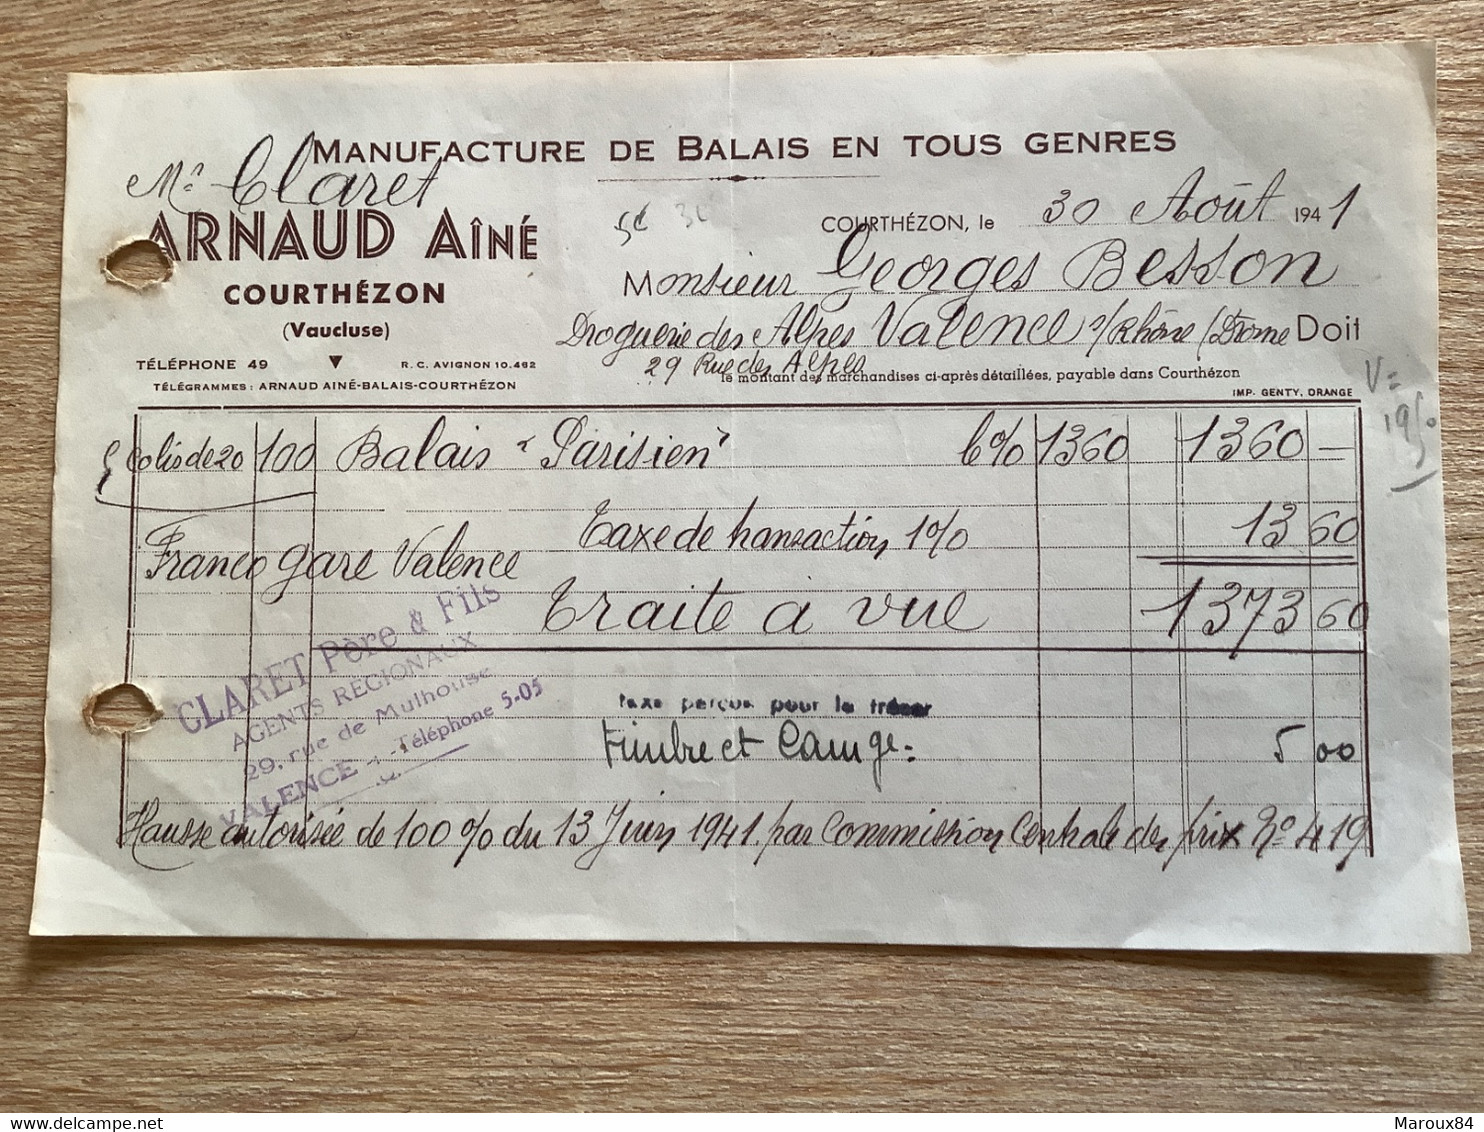 MANUFACTURE DE BALAIS EN TOUS GENRES
Mr Claret
ARNAUD AÎNÉ
COURTHÉZON
(Vaucluse)
TÉLÉPHONE 49 R. C. AVIGNON 10.462
TÉLÉGRAMMES : ARNAUD AINÉ-BALAIS-COURTHÉZON
COURTHÉZON, le 30 Août 1941
Monsieur Georges Besson
Droguerie des Alpes Valence s/Rhône (Drome Doit
29 Rue des Alpes
le montant des marchandises ci-après détaillées, payable dans Courthézon
IMP. GENTY, ORANGE
V=
1950
5 Colis de 20 100 Balais "Parisien" le % 1360 1360 =
Taxe de transaction 1% 13 60
Franco gare Valence
Traite à vue 1373 60
CLARET Père & Fils
AGENTS RÉGIONAUX
29, rue de Mulhouse
VALENCE - Téléphone 5-05
taxe perçue pour le trésor
Timbre et 5 00
Hausse autorisée de 100% du 13 Juin 1941 par Commission Centrale des prix No 419
Maroux84